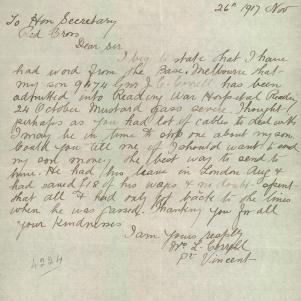 26th 1917 Nov
To Hon Secretary
Red Cross
Dear Sir
I beg to state that I have
had word from the Base Melbourne that
my son 9474 Gnr J. C. Correll has been
admitted into Reading War Hospital Reading
24 October Mustard Gass severe. Thought
perhaps as you had lot of cables to deal with
I may be in time to stop one about my son.
Could you tell me if I should want to send
my son money the best way to send to
him. He had his leave in London Aug &
had saved £18 of his wages & no doubt spent
that all & had only got back to the lines
when he was gassed. Thanking you for all
your kindness
I am yours resptly
Mrs L. Correll
Pt Vincent